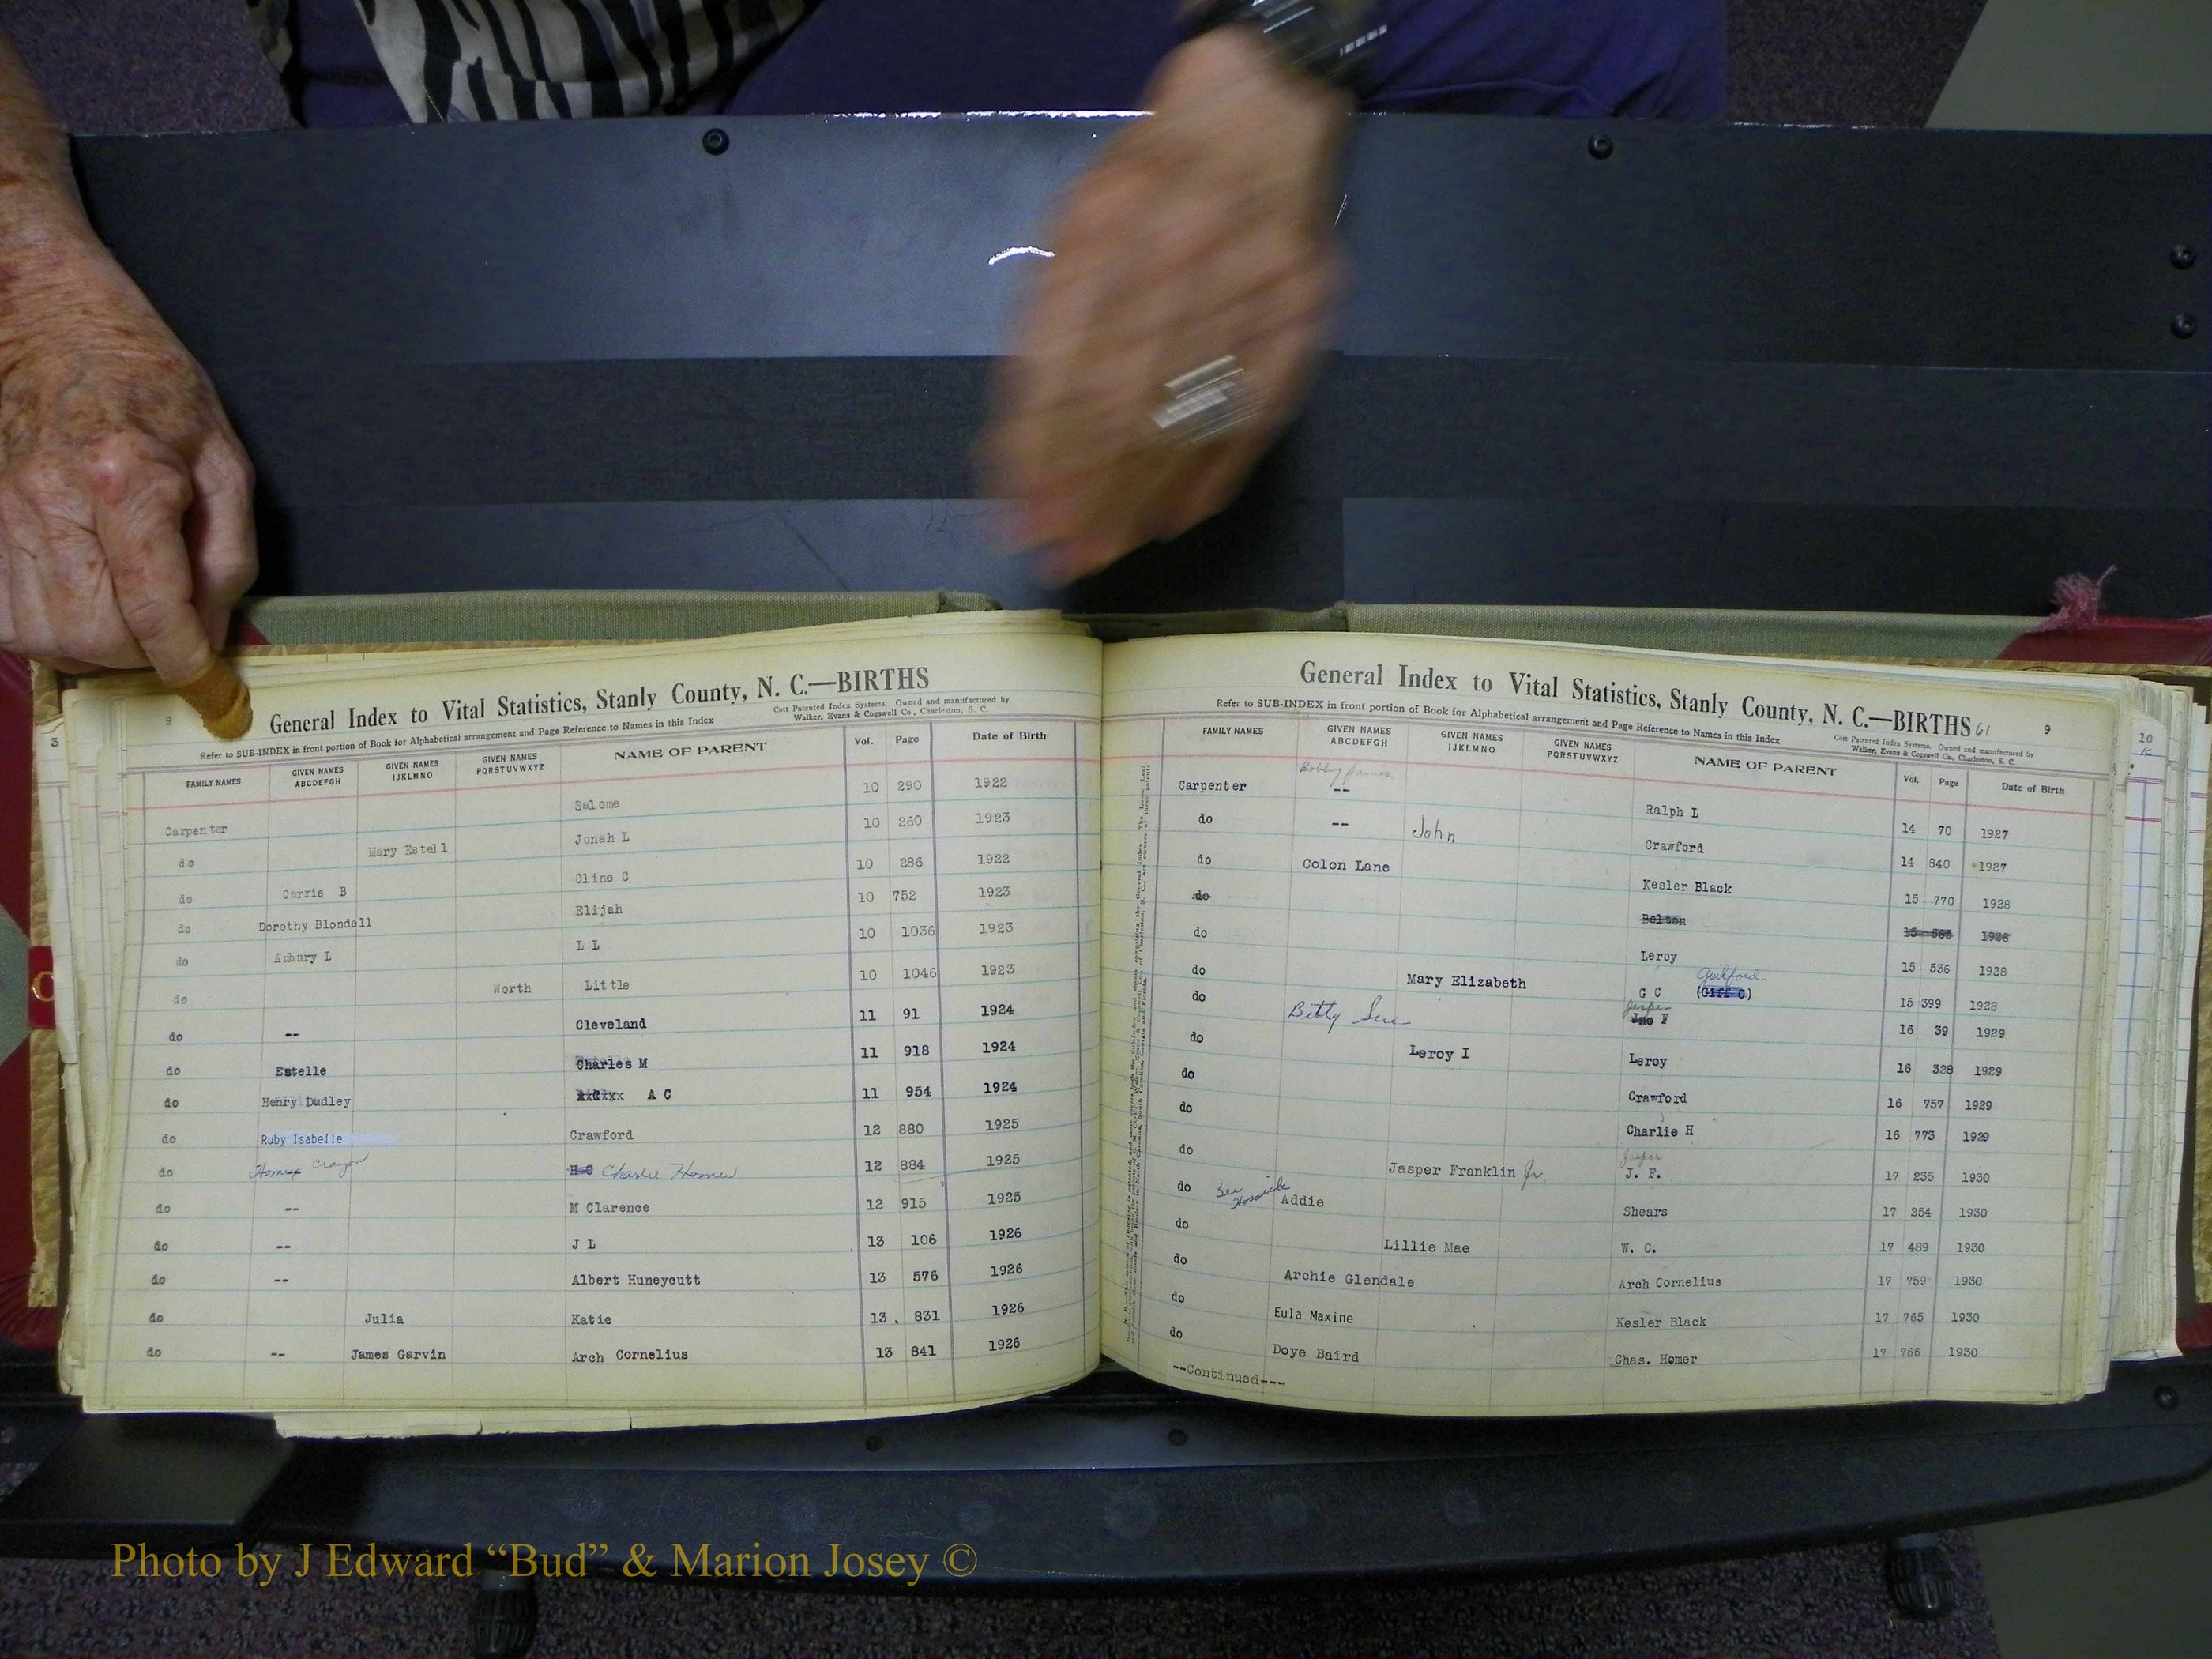 9
General Index to Vital Statistics, Stanly County, N. C.—BIRTHS
Refer to SUB-INDEX in front portion of Book for Alphabetical arrangement and Page Reference to Names in this Index
Cott Patented Index Systems, Owned and manufactured by
Walker, Evans & Cogswell Co., Charleston, S. C.
FAMILY NAMES GIVEN NAMES ABCDEFGH GIVEN NAMES IJKLMNO GIVEN NAMES PQRSTUVWXYZ NAME OF PARENT Vol. Page Date of Birth
Carpenter Salome 10 290 1922
do Mary Estell Jonah L 10 260 1923
do Carrie B Cline C 10 286 1922
do Dorothy Blondell Elijah 10 752 1923
do Aubury L L L 10 1036 1923
do Worth Little 10 1046 1923
do -- Cleveland 11 91 1924
do Estelle Charles M 11 918 1924
do Henry Dudley A C 11 954 1924
do Ruby Isabelle Crawford 12 880 1925
do Homer Crayon H C Charlie Homer 12 884 1925
do -- M Clarence 12 915 1925
do -- J L 13 106 1926
do -- Albert Huneycutt 13 576 1926
do Julia Katie 13 831 1926
do -- James Garvin Arch Cornelius 13 841 1926
General Index to Vital Statistics, Stanly County, N. C.—BIRTHS 61
9
Refer to SUB-INDEX in front portion of Book for Alphabetical arrangement and Page Reference to Names in this Index
Cott Patented Index Systems, Owned and manufactured by
Walker, Evans & Cogswell Co., Charleston, S. C.
FAMILY NAMES GIVEN NAMES ABCDEFGH GIVEN NAMES IJKLMNO GIVEN NAMES PQRSTUVWXYZ NAME OF PARENT Vol. Page Date of Birth
Bobby James
Carpenter -- Ralph L 14 70 1927
do -- John Crawford 14 840 1927
do Colon Lane Kesler Black 15 770 1928
do Belton 15 1928
do Leroy 15 536 1928
Guilford
do Mary Elizabeth G C (Giff C) 15 399 1928
Jasper
do Betty Sue Jno F 16 39 1929
do Leroy I Leroy 16 328 1929
do Crawford 16 757 1929
do Charlie H 16 773 1929
Jasper
do Jasper Franklin Jr J. F. 17 235 1930
do See Addie Shears 17 254 1930
do Lillie Mae W. C. 17 489 1930
do Archie Glendale Arch Cornelius 17 759 1930
do Eula Maxine Kesler Black 17 765 1930
do Doye Baird Chas. Homer 17 766 1930
--Continued---
3
10
C
Photo by J Edward “Bud” & Marion Josey ©